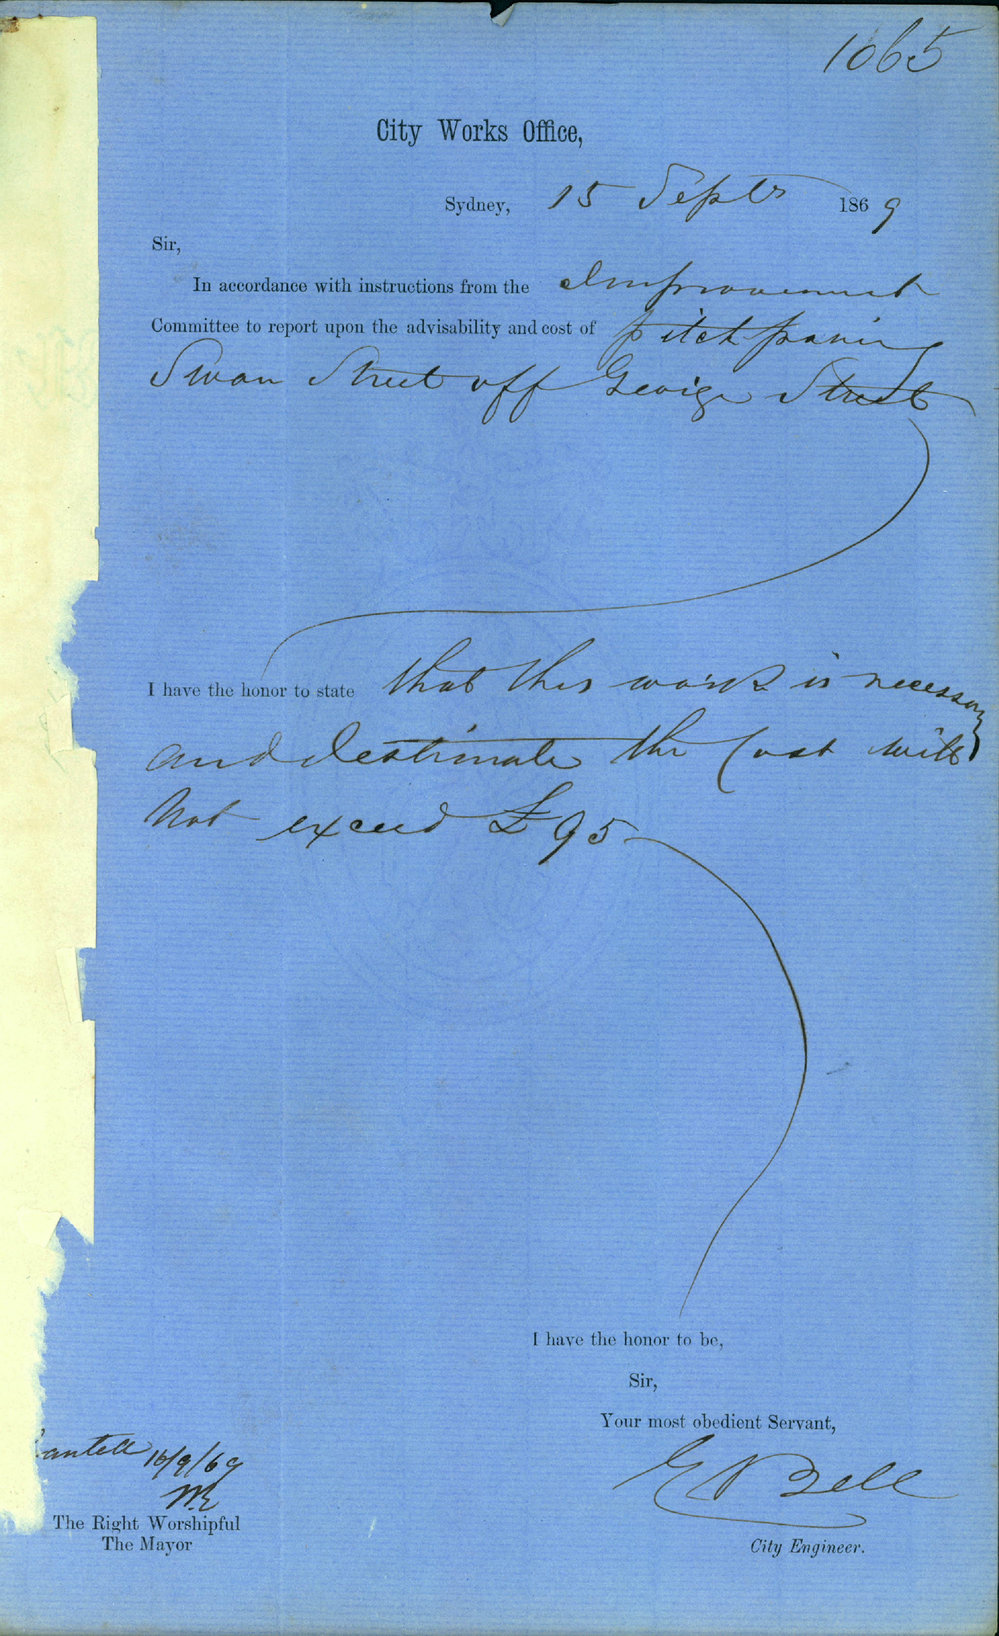 1065
City Works Office,
Sydney, 15 Septr 1869
Sir,
In accordance with instructions from the Improvement
Committee to report upon the advisability and cost of pitch paving
Swan Street off George Street
I have the honor to state that this work is necessary
and I estimate the Cost will
Not exceed £95
I have the honor to be,
Sir,
Your most obedient Servant,
E Bell
City Engineer.
antell 16/9/69
The Right Worshipful
The Mayor